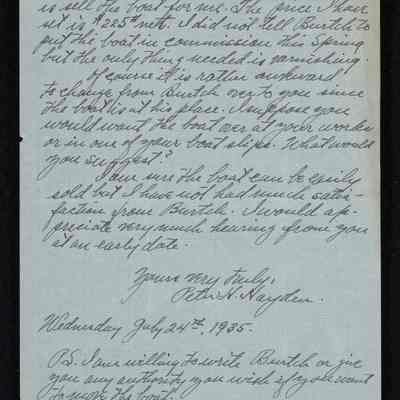 is sell the boat for me. The price I have
set is $225.00 nett. I did not tell Burtch to
put the boat in commission this Spring
but the only thing needed is varnishing.
Of course it is rather awkward
to change from Burtch over to you since
the boat is at his place. I suppose you
would want the boat over at your works
or in one of your boat slips. What would
you suggest?
I am sure the boat can be easily
sold but I have not had much satis-
faction from Burtch. I would ap-
preciate very much hearing from you
at an early date.
Yours very truly,
Peter H. Hayden.
Wednesday July 24th, 1935.
P.S. I am willing to write Burtch or give
you any authority you wish if you want
to move the boat.